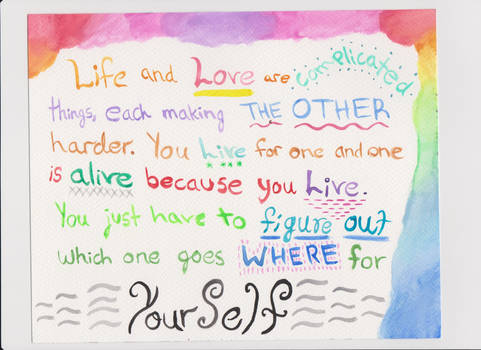 Life and Love are complicated
things, each making THE OTHER
harder. You Live for one and one
is alive because you Live.
You just have to figure out
which one goes WHERE for
YourSelf